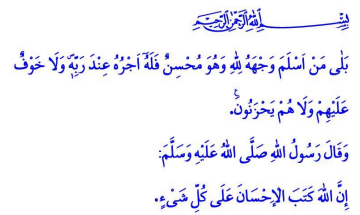 بِسْمِ اللهِ الرَّحْمٰنِ الرَّحِيمِ
بَلٰى مَنْ اَسْلَمَ وَجْهَهُ لِلّٰهِ وَهُوَ مُحْسِنٌ فَلَهُٓ اَجْرُهُ عِنْدَ رَبِّهِۖ وَلَا خَوْفٌ
عَلَيْهِمْ وَلَا هُمْ يَحْزَنُونَ۟.
وَقَالَ رَسُولُ اللهِ صَلَّى اللهُ عَلَيْهِ وَسَلَّمَ:
إِنَّ اللهَ كَتَبَ الإِحْسَانَ عَلَى كُلِّ شَيْءٍ.